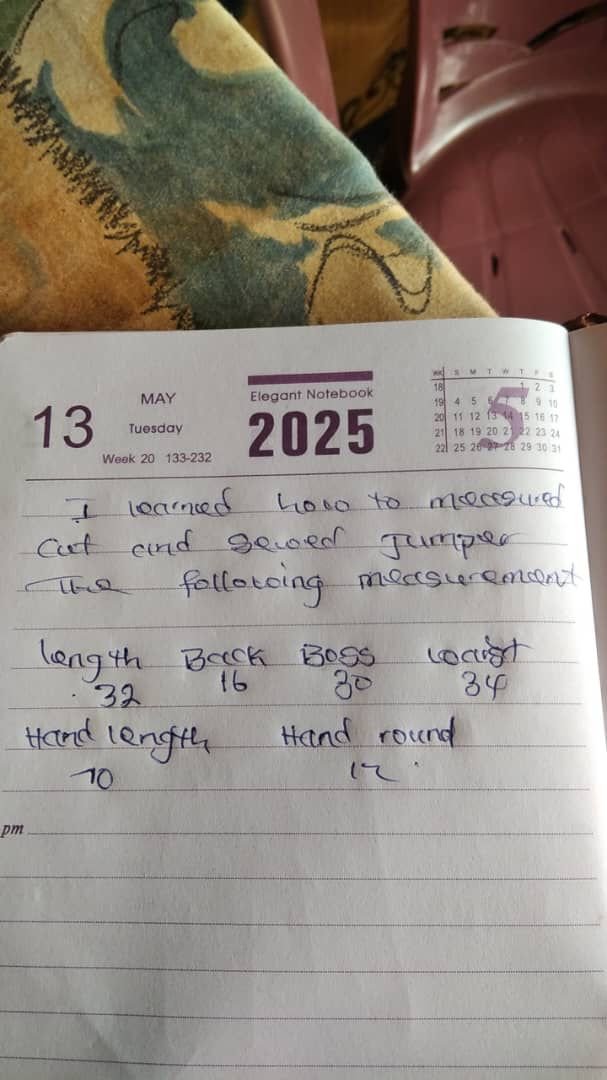 MAY
13
Tuesday
Week 20 133-232
Elegant Notebook
2025
WK S M T W T F S
18 1 2 3
19 4 5 6 7 8 9 10
20 11 12 13 14 15 16 17
21 18 19 20 21 22 23 24
22 25 26 27 28 29 30 31
5
I learned how to measured
Cut and sewed Jumper
The following measurement
length Back Boss waist
32 16 30 34
Hand length Hand round
10 12
pm